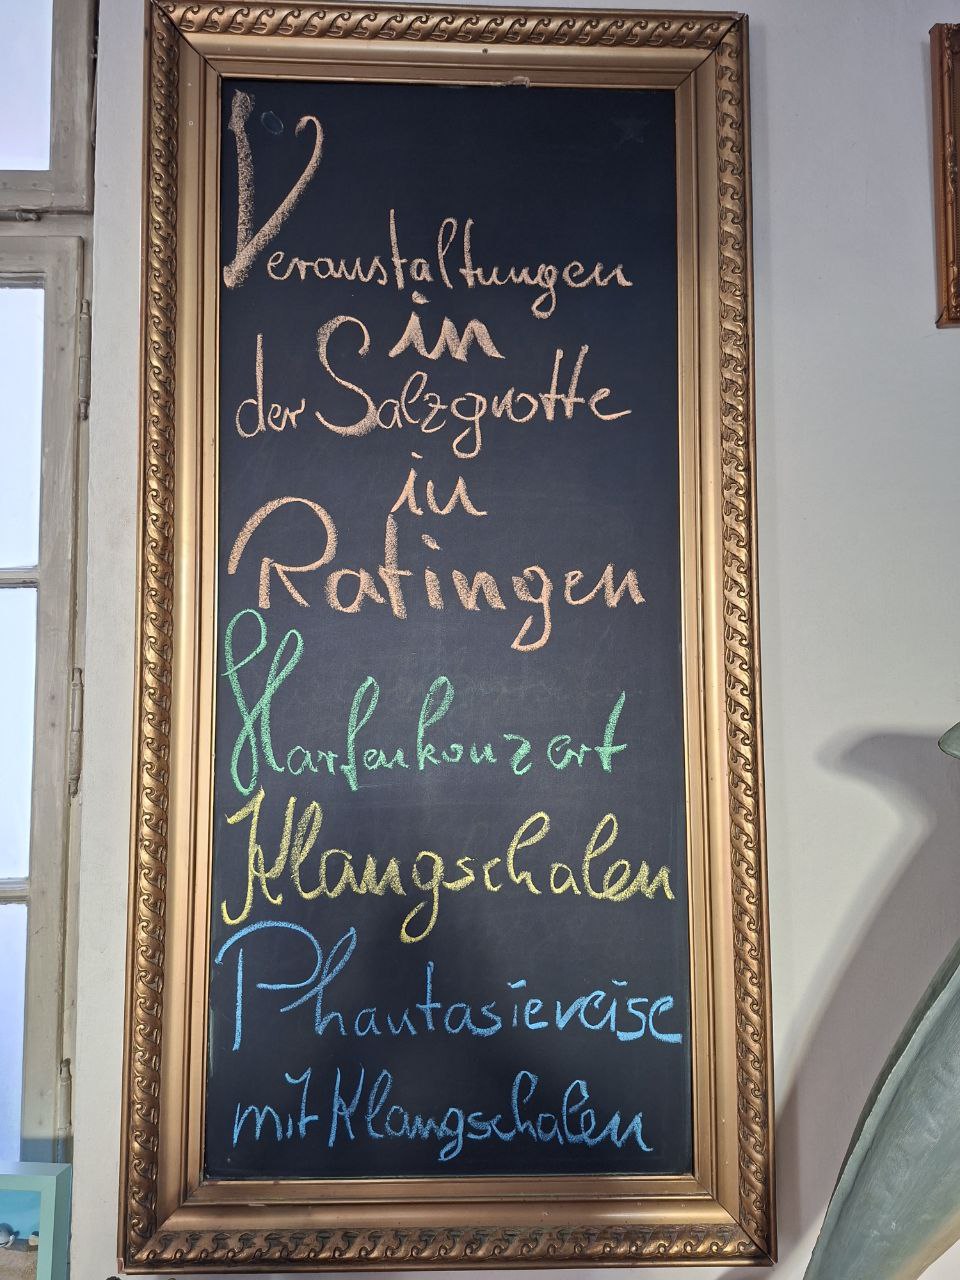 Veranstaltungen
in
der Salzgrotte
in
Ratingen
Harfenkonzert
Klangschalen
Phantasiereise
mit Klangschalen